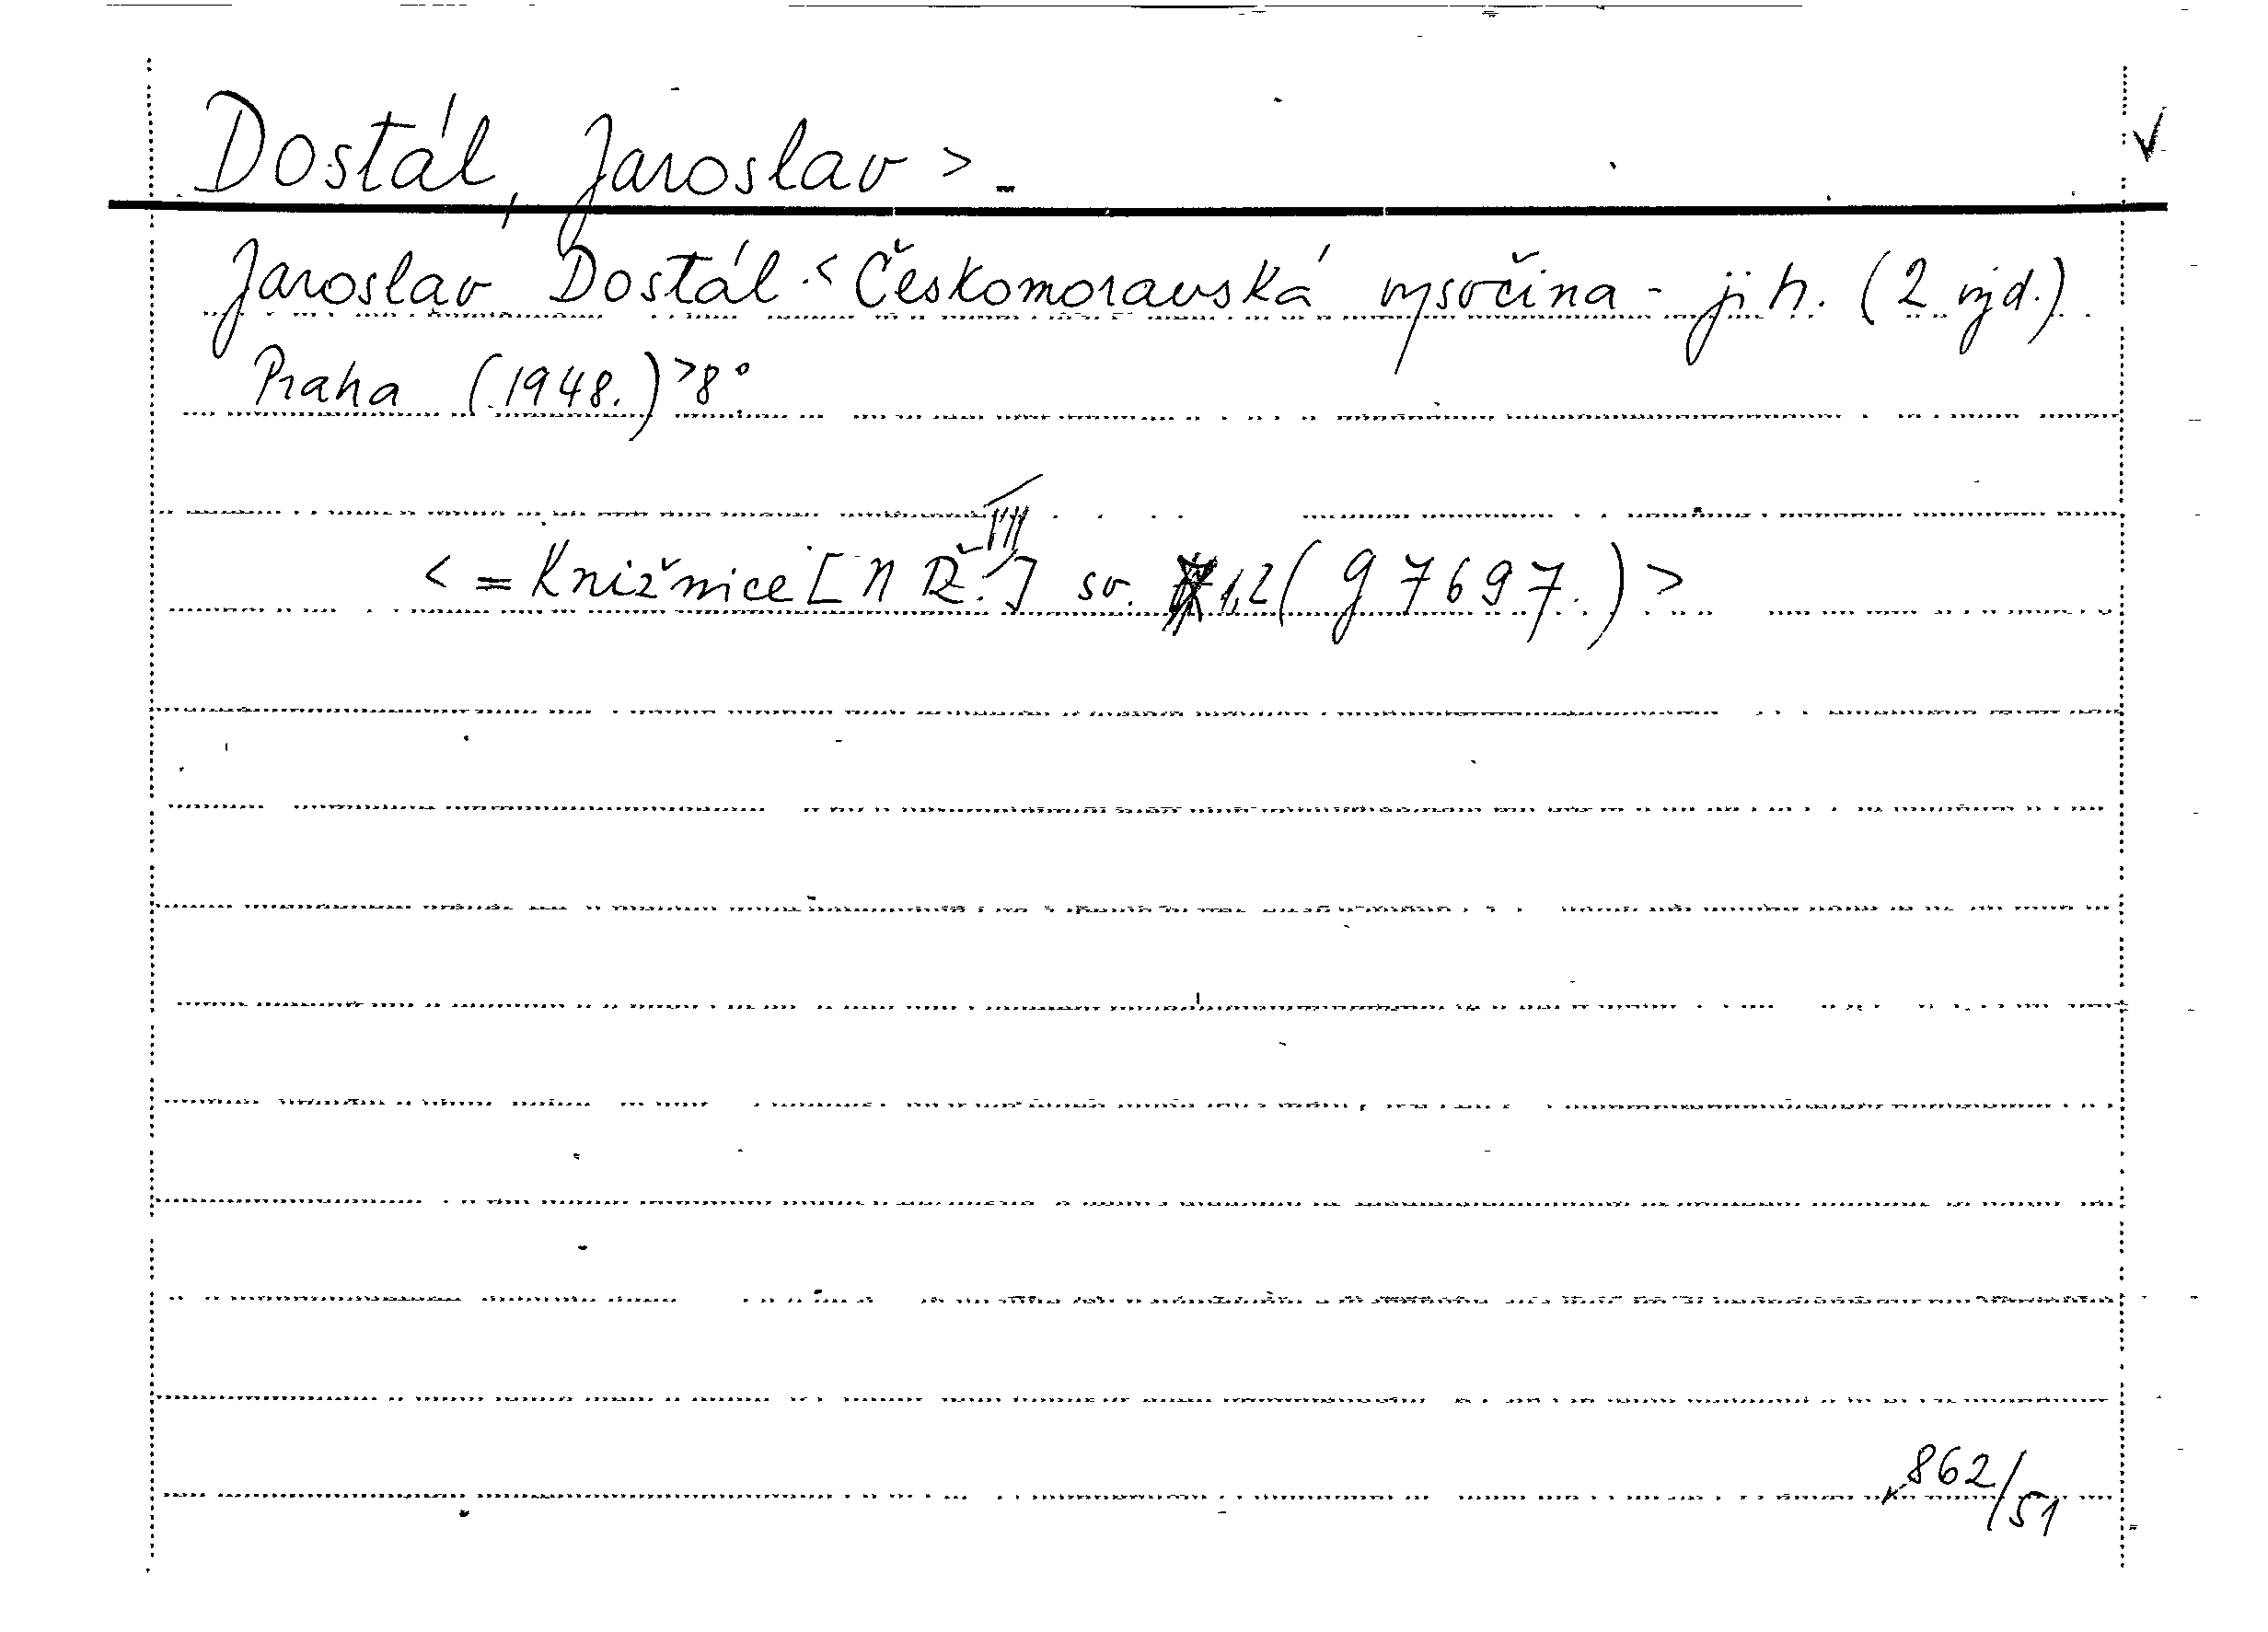 Dostál, Jaroslav >.
Jaroslav Dostál. < Českomoravská vysočina - jih. (2 vyd.)
Praha (1948.) > 8°
III
< = Knižnice [ N Ř. ] sv. 1,2 ( g 7697. ) >
862/51